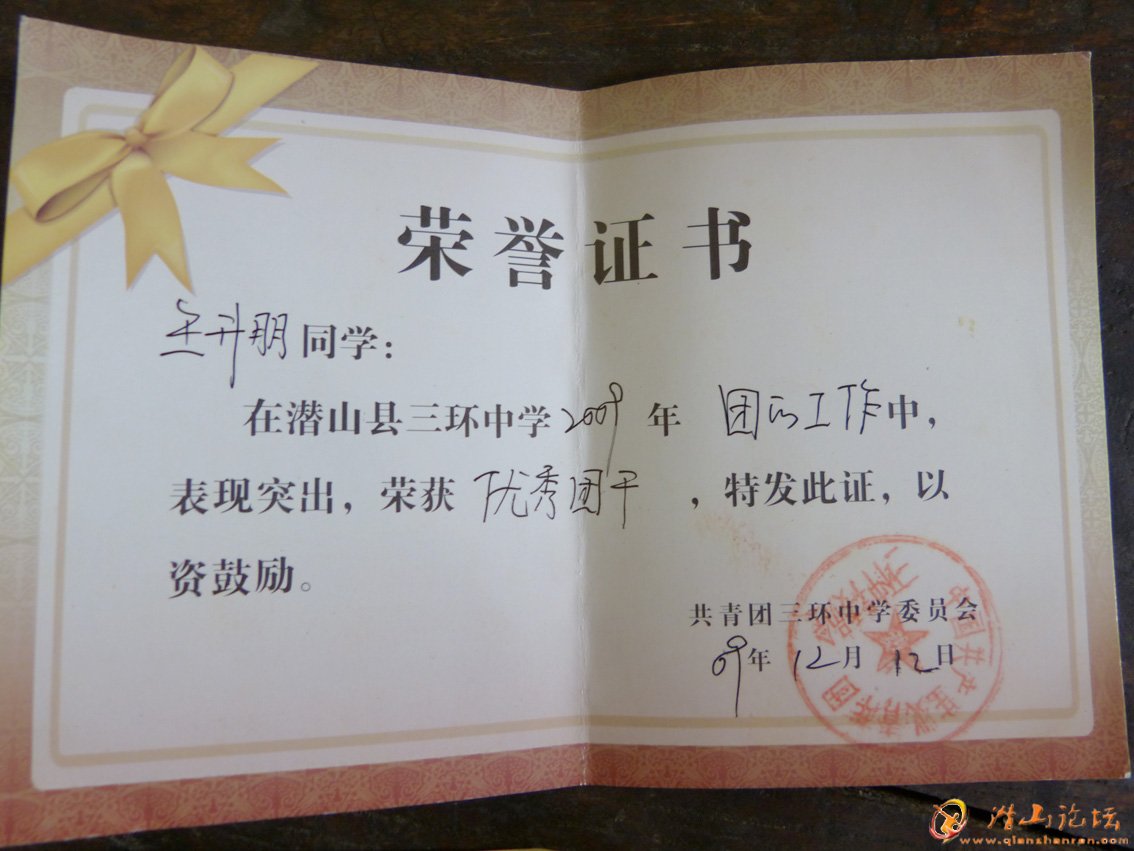 荣誉证书
王升朋同学:
在潜山县三环中学2009年 团的工作中,
表现突出,荣获 优秀团干 ,特发此证,以
资鼓励。
共青团三环中学委员会
09年 12月 12日
中国共产主义青年团
潜山论坛
www.qianshanren.com